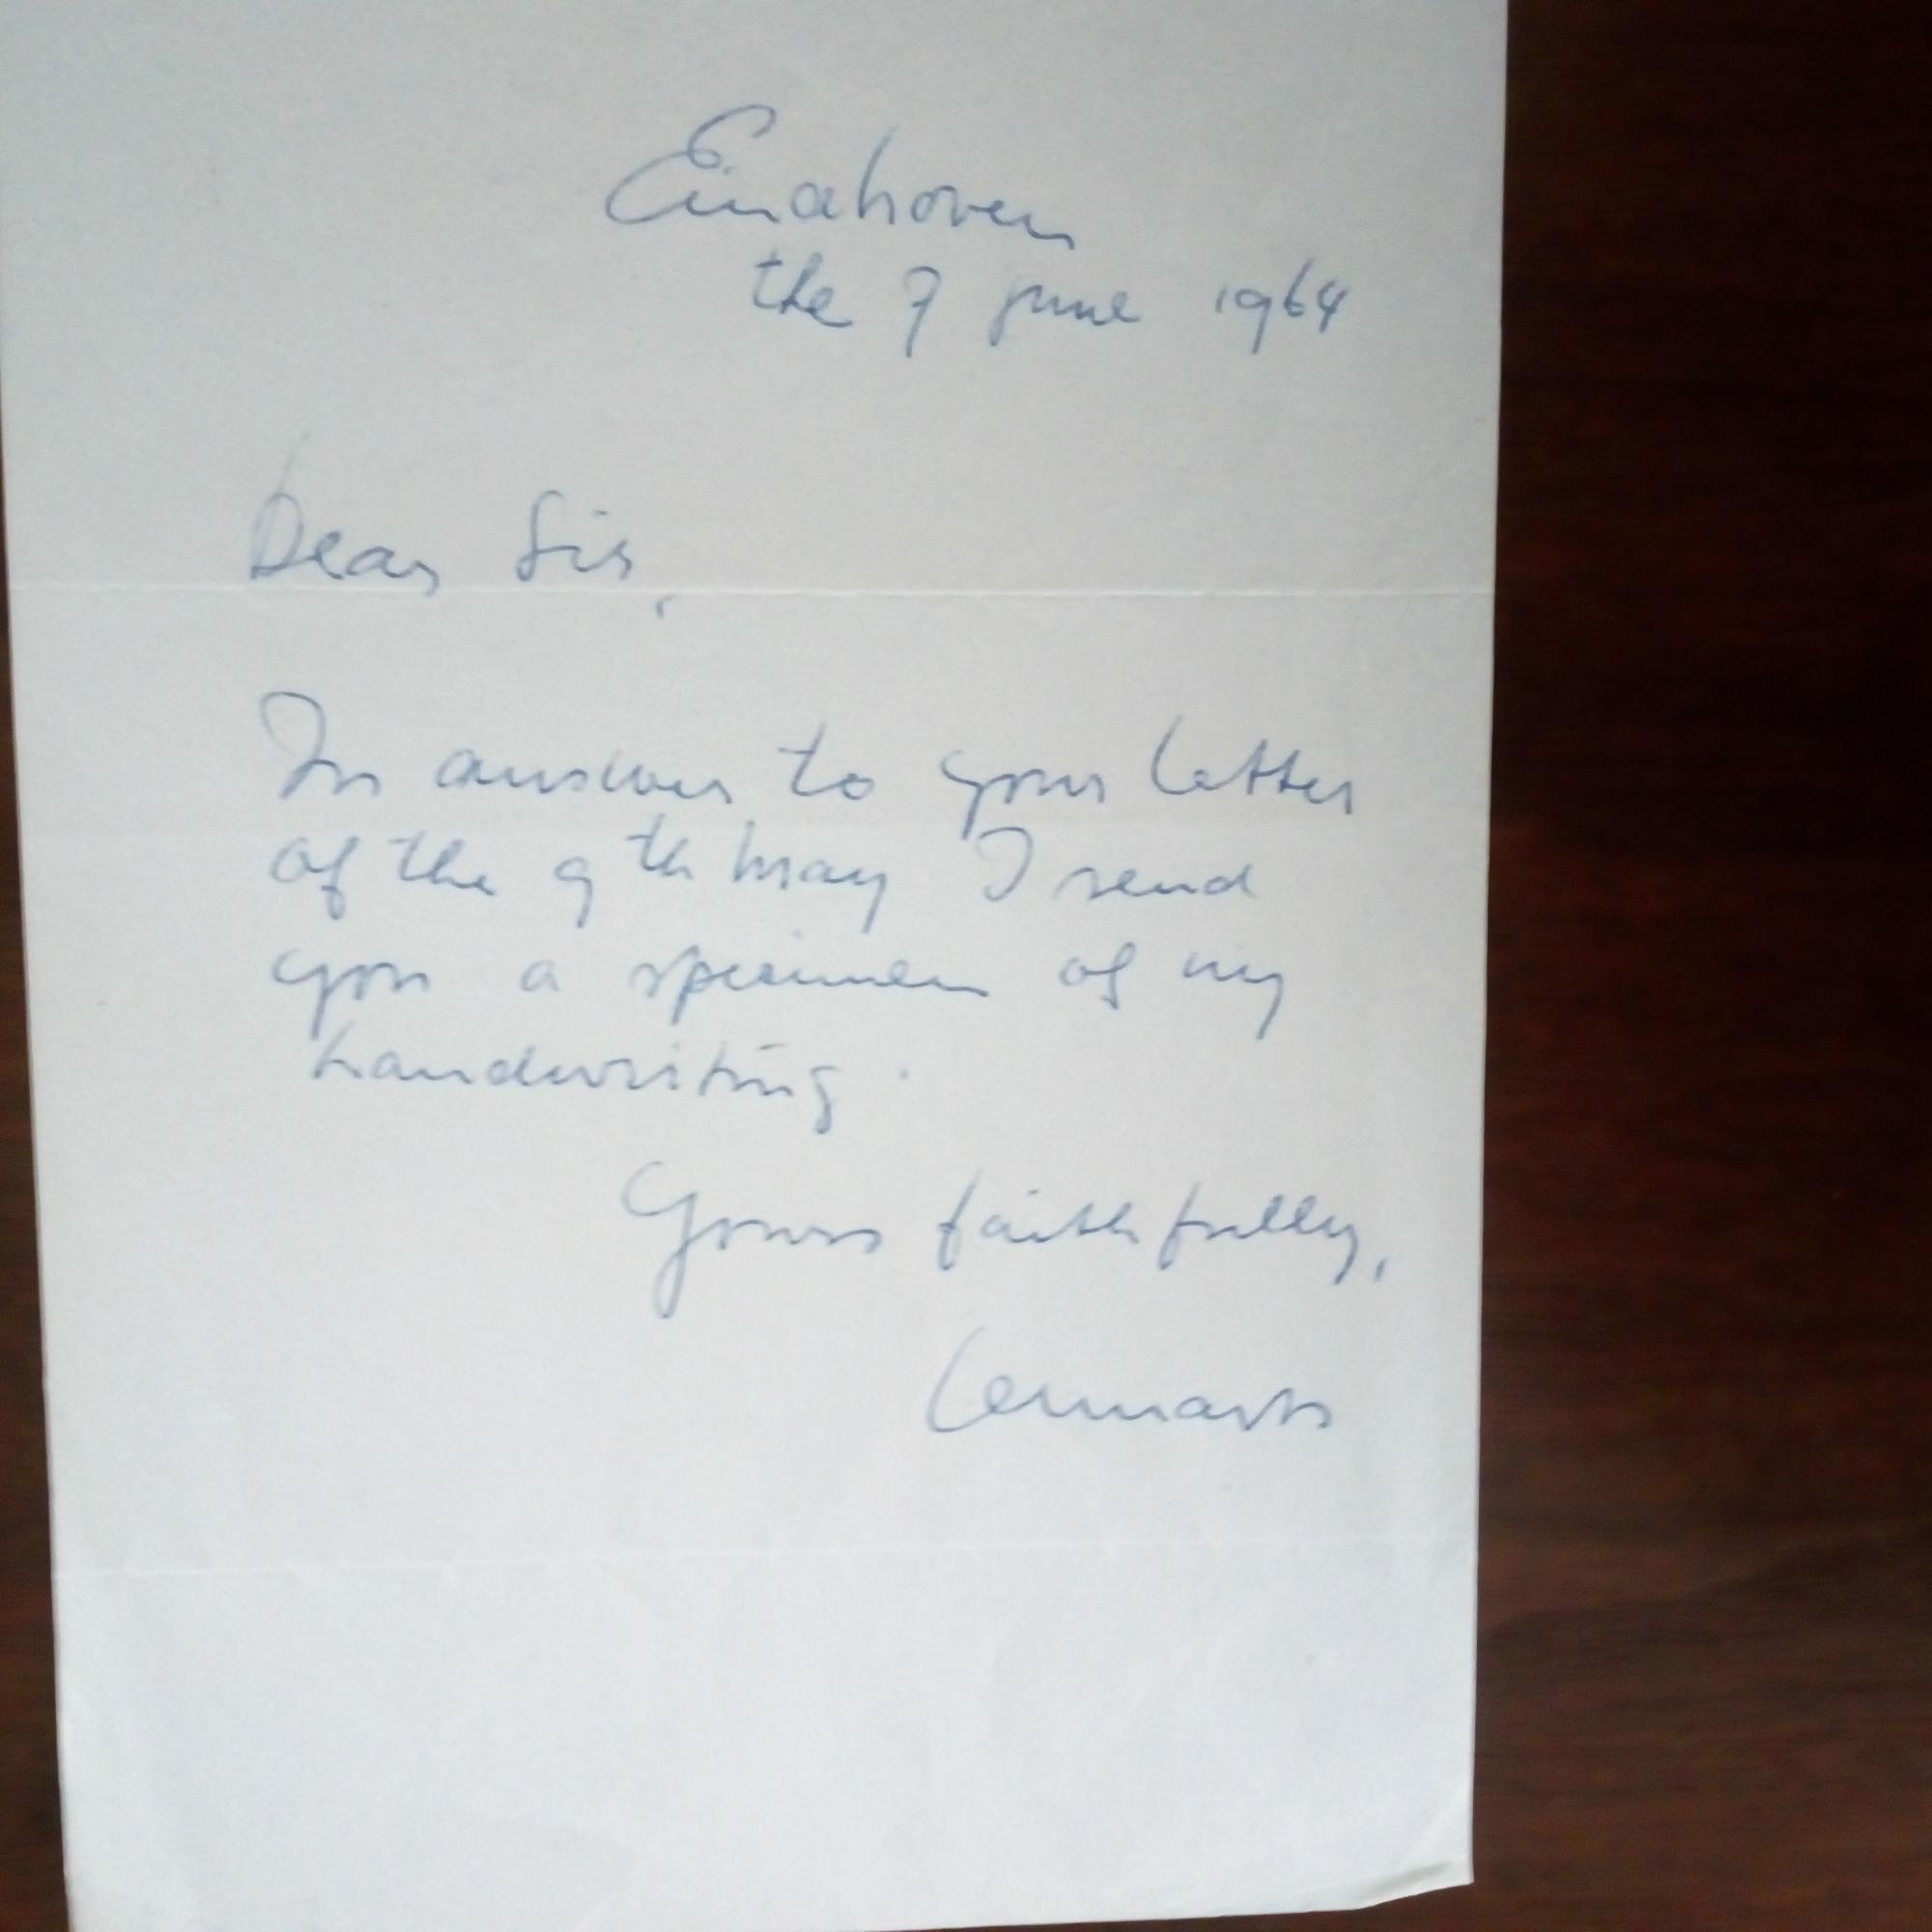 Eindhoven
the 7 june 1964
Dear Sir,
In answer to your letter
of the 9th May I send
you a specimen of my
handwriting.
Yours faithfully,